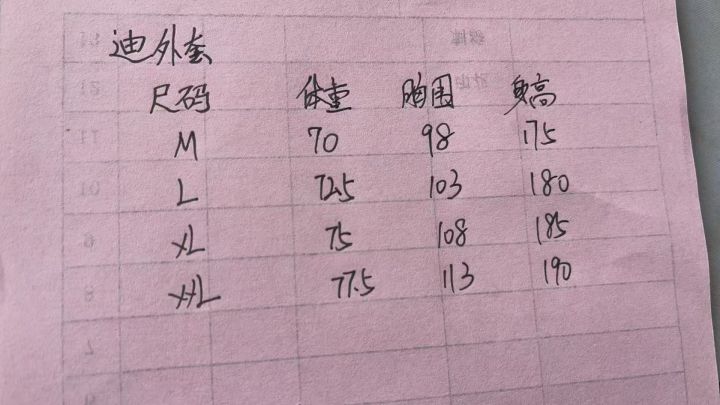 迪外套
尺码 体重 胸围 身高
M 70 98 175
L 72.5 103 180
XL 75 108 185
XXL 77.5 113 190